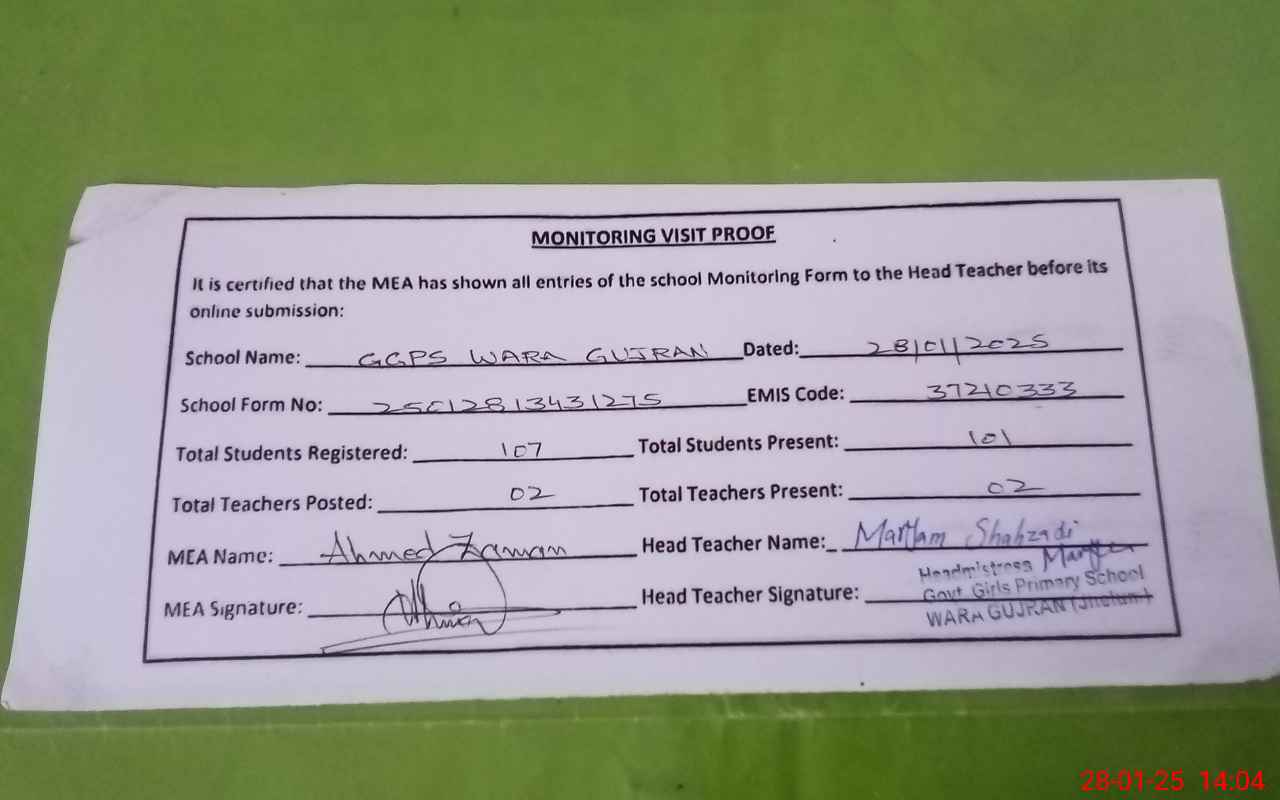 MONITORING VISIT PROOF
It is certified that the MEA has shown all entries of the school Monitoring Form to the Head Teacher before its
online submission:
School Name: GGPS WARA GUJRAN Dated: 28/01/2025
School Form No: 25012813431275 EMIS Code: 37210333
Total Students Registered: 107 Total Students Present: 101
Total Teachers Posted: 02 Total Teachers Present: 02
MEA Name: Ahmed Zaman Head Teacher Name: Maryam Shahzadi
MEA Signature: Head Teacher Signature:
Headmistress
Govt Girls Primary School
WARA GUJRAN (Jhelum)
28-01-25 14:04